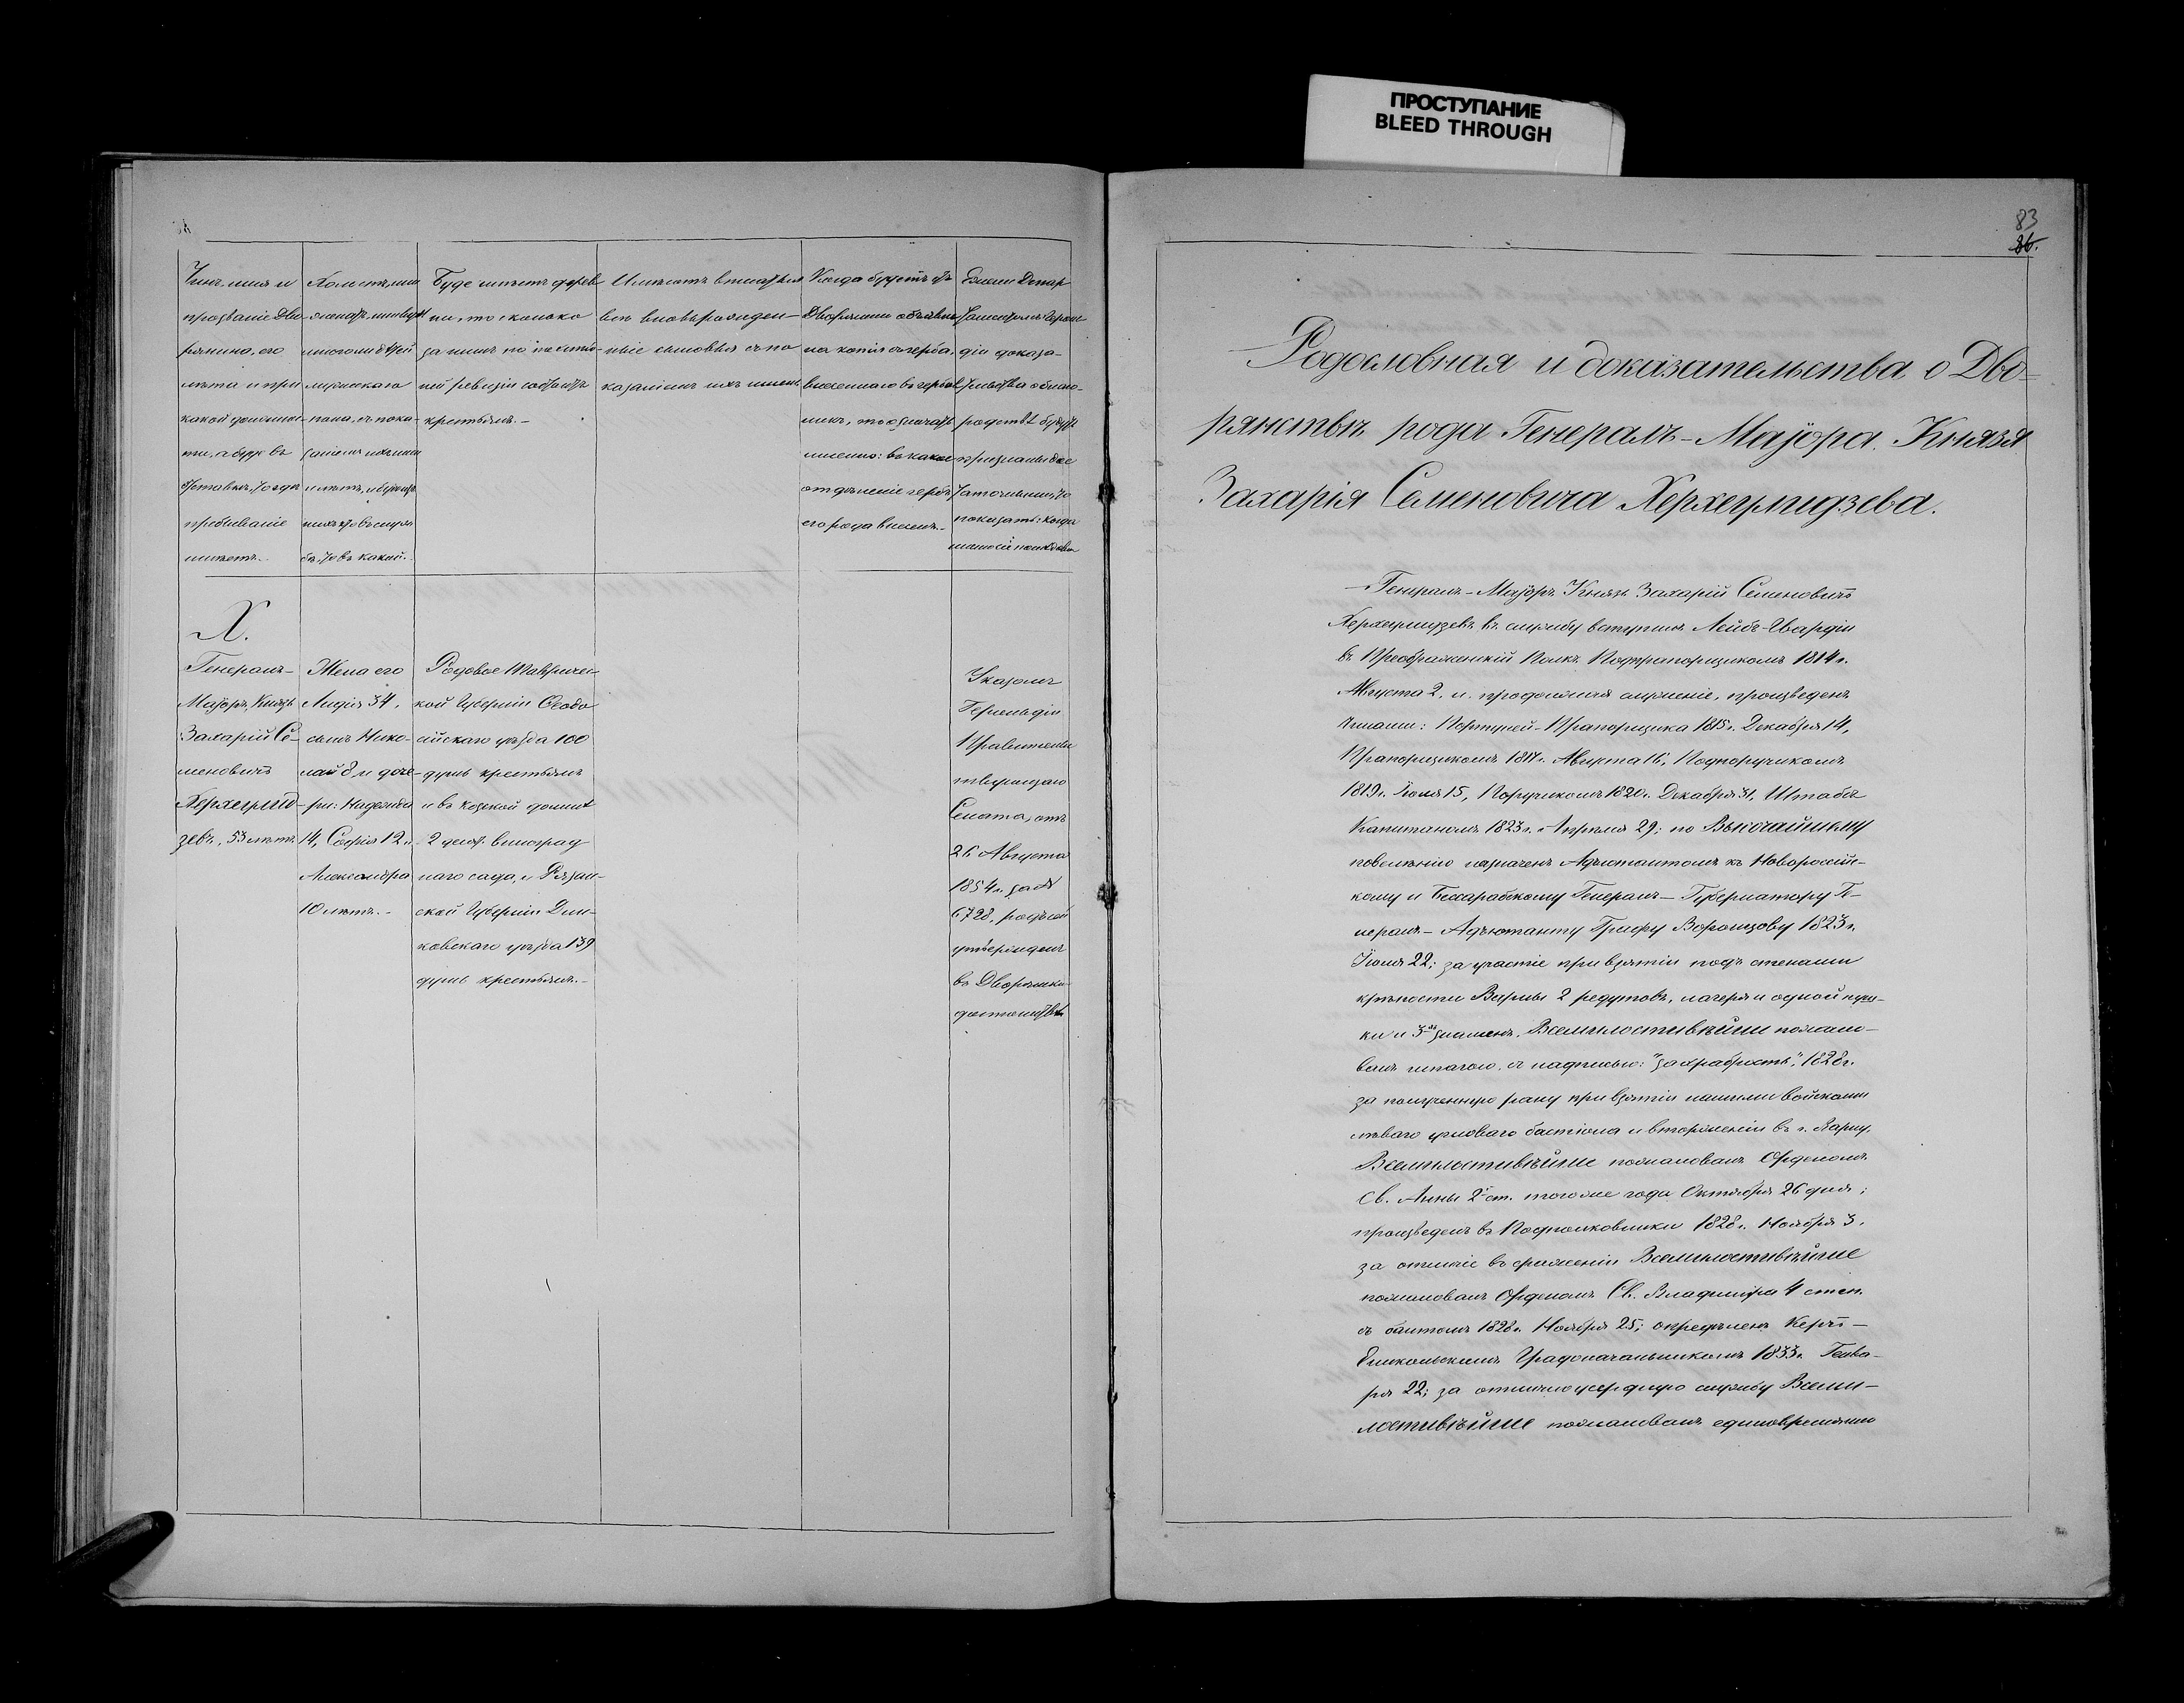 ПРОСТУПАНИЕ
BLEED THROUGH
Чинъ, имя и
прозваніе Дво-
рянина, его
лѣта и при
какой должнос-
ти, а буде въ
отставкѣ, то гдѣ
пребываніе
имѣетъ.
Холостъ, или
женатъ, имѣетъ
много ли дѣтей
мужескаго
пола, съ пока-
заніемъ ихъ имян
и лѣтъ, и буде изъ
нихъ кто въ служ
бѣ, то въ какой.
Буде имѣетъ дерев
ни, то сколько
за нимъ по послѣд-
ней ревизіи состоитъ
крестьянъ.-
Имѣютъ в
всѣ вновь рожден-
ные сыновья съ по
казаніемъ ихъ именъ
Когда будетъ отъ
Дворянина объявле
на копія съ герба,
внесеннаго въ гербов
никъ, то означать
именно: въ какое
отдѣленіе гербъ
его рода внесенъ.-
Если Депар
таментомъ Героль
діи доказа-
тельства о благо-
родствѣ будутъ
признаны дос
таточными, то
показать: когда
Х.
Генералъ-
Маіоръ, Князь
Захарій Се-
меновичъ
Херхеулид-
зевъ, 53 лѣтъ
Жена его
Лидія 34,
сынъ Нико-
лай 8, и доче-
ри: Надежда
14, Софія 12 и
Александра
10 лѣтъ.-
Родовое Тавричес-
кой Губерніи Ѳеодо
сійскаго уѣзда 100
душъ крестьянъ
и въ Козской долинѣ
2 десят. виноград
наго сада, и Рязан-
ской Губерніи Дан-
ковскаго уѣзда 139
душъ крестьянъ.-
Указомъ
Герольдіи
Правительс
твующаго
Сената, отъ
26 Августа
1854 г. за №
6728, родъ сей
утвержденъ
въ Дворянск.
достоинствѣ
83
86.
Родословная и доказательства о Дво-
рянствѣ рода Генералъ-Маіора Князя
Захарія Семеновича Херхеулидзева.
Генералъ-Маіоръ Князь Захарій Семеновичъ
Херхеулидзевъ въ службу вступилъ Лейбъ-Гвардіи
въ Преображенскій Полкъ Подпрапорщикомъ 1814 г.
Августа 2, и продолжая служеніе, произведенъ
чинами: Портупей-Прапорщика 1815 г. Декабря 14,
Прапорщикомъ 1817 г. Августа 16, Подпоручикомъ
1819 г. Іюля 15, Поручикомъ 1820 г. Декабря 31, Штабсъ
Капитаномъ 1823 г. Апрѣля 29; по Высочайшему
повелѣнію назначенъ Адъютантомъ къ Новороссійс-
кому и Бессарабскому Генералъ-Губернатору Ге-
нералъ-Адъютанту Графу Воронцову 1823 г.
Іюля 22; за участіе при взятіи подъ стенами
крѣпости Варны 2 редутовъ, лагеря и одной пуш-
ки и 3-хъ знаменъ, Всемилостивѣйше пожало-
ванъ шпагою, съ надписью: "за храбрость", 1828 г.
за полученную рану при взятіи нашими войсками
лѣваго угловаго бастіона и вторженіи въ г. Варну,
Всемилостивѣйше пожалованъ Орденомъ
Св. Анны 2й ст. того же года Октября 26 дня;
произведенъ въ Подполковники 1828 г. Ноября 3.
за отличіе въ сраженіи Всемилостивѣйше
пожалованъ Орденомъ Св. Владиміра 4 степ.
съ бантомъ 1828 г. Ноября 25; опредѣленъ Керчь-
Еникольскимъ Градоначальникомъ 1833 г. Генва-
ря 22; за отличноусердную службу Всеми-
лостивѣйше пожалованъ единовременно